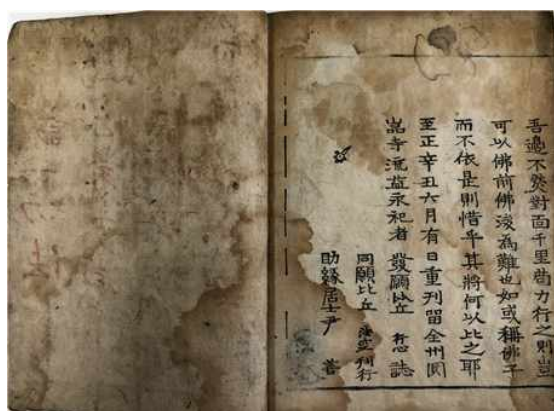 吾邊不然對面千里苟力行之則豈
可以佛前佛後為難也如或稱佛子
而不依是則惜乎其將何以比之耶
至正辛丑六月有日重刊留全州圓
嵓寺流益永祀者 發願比丘 誌
同願比丘 刊行
助緣居士尹 善